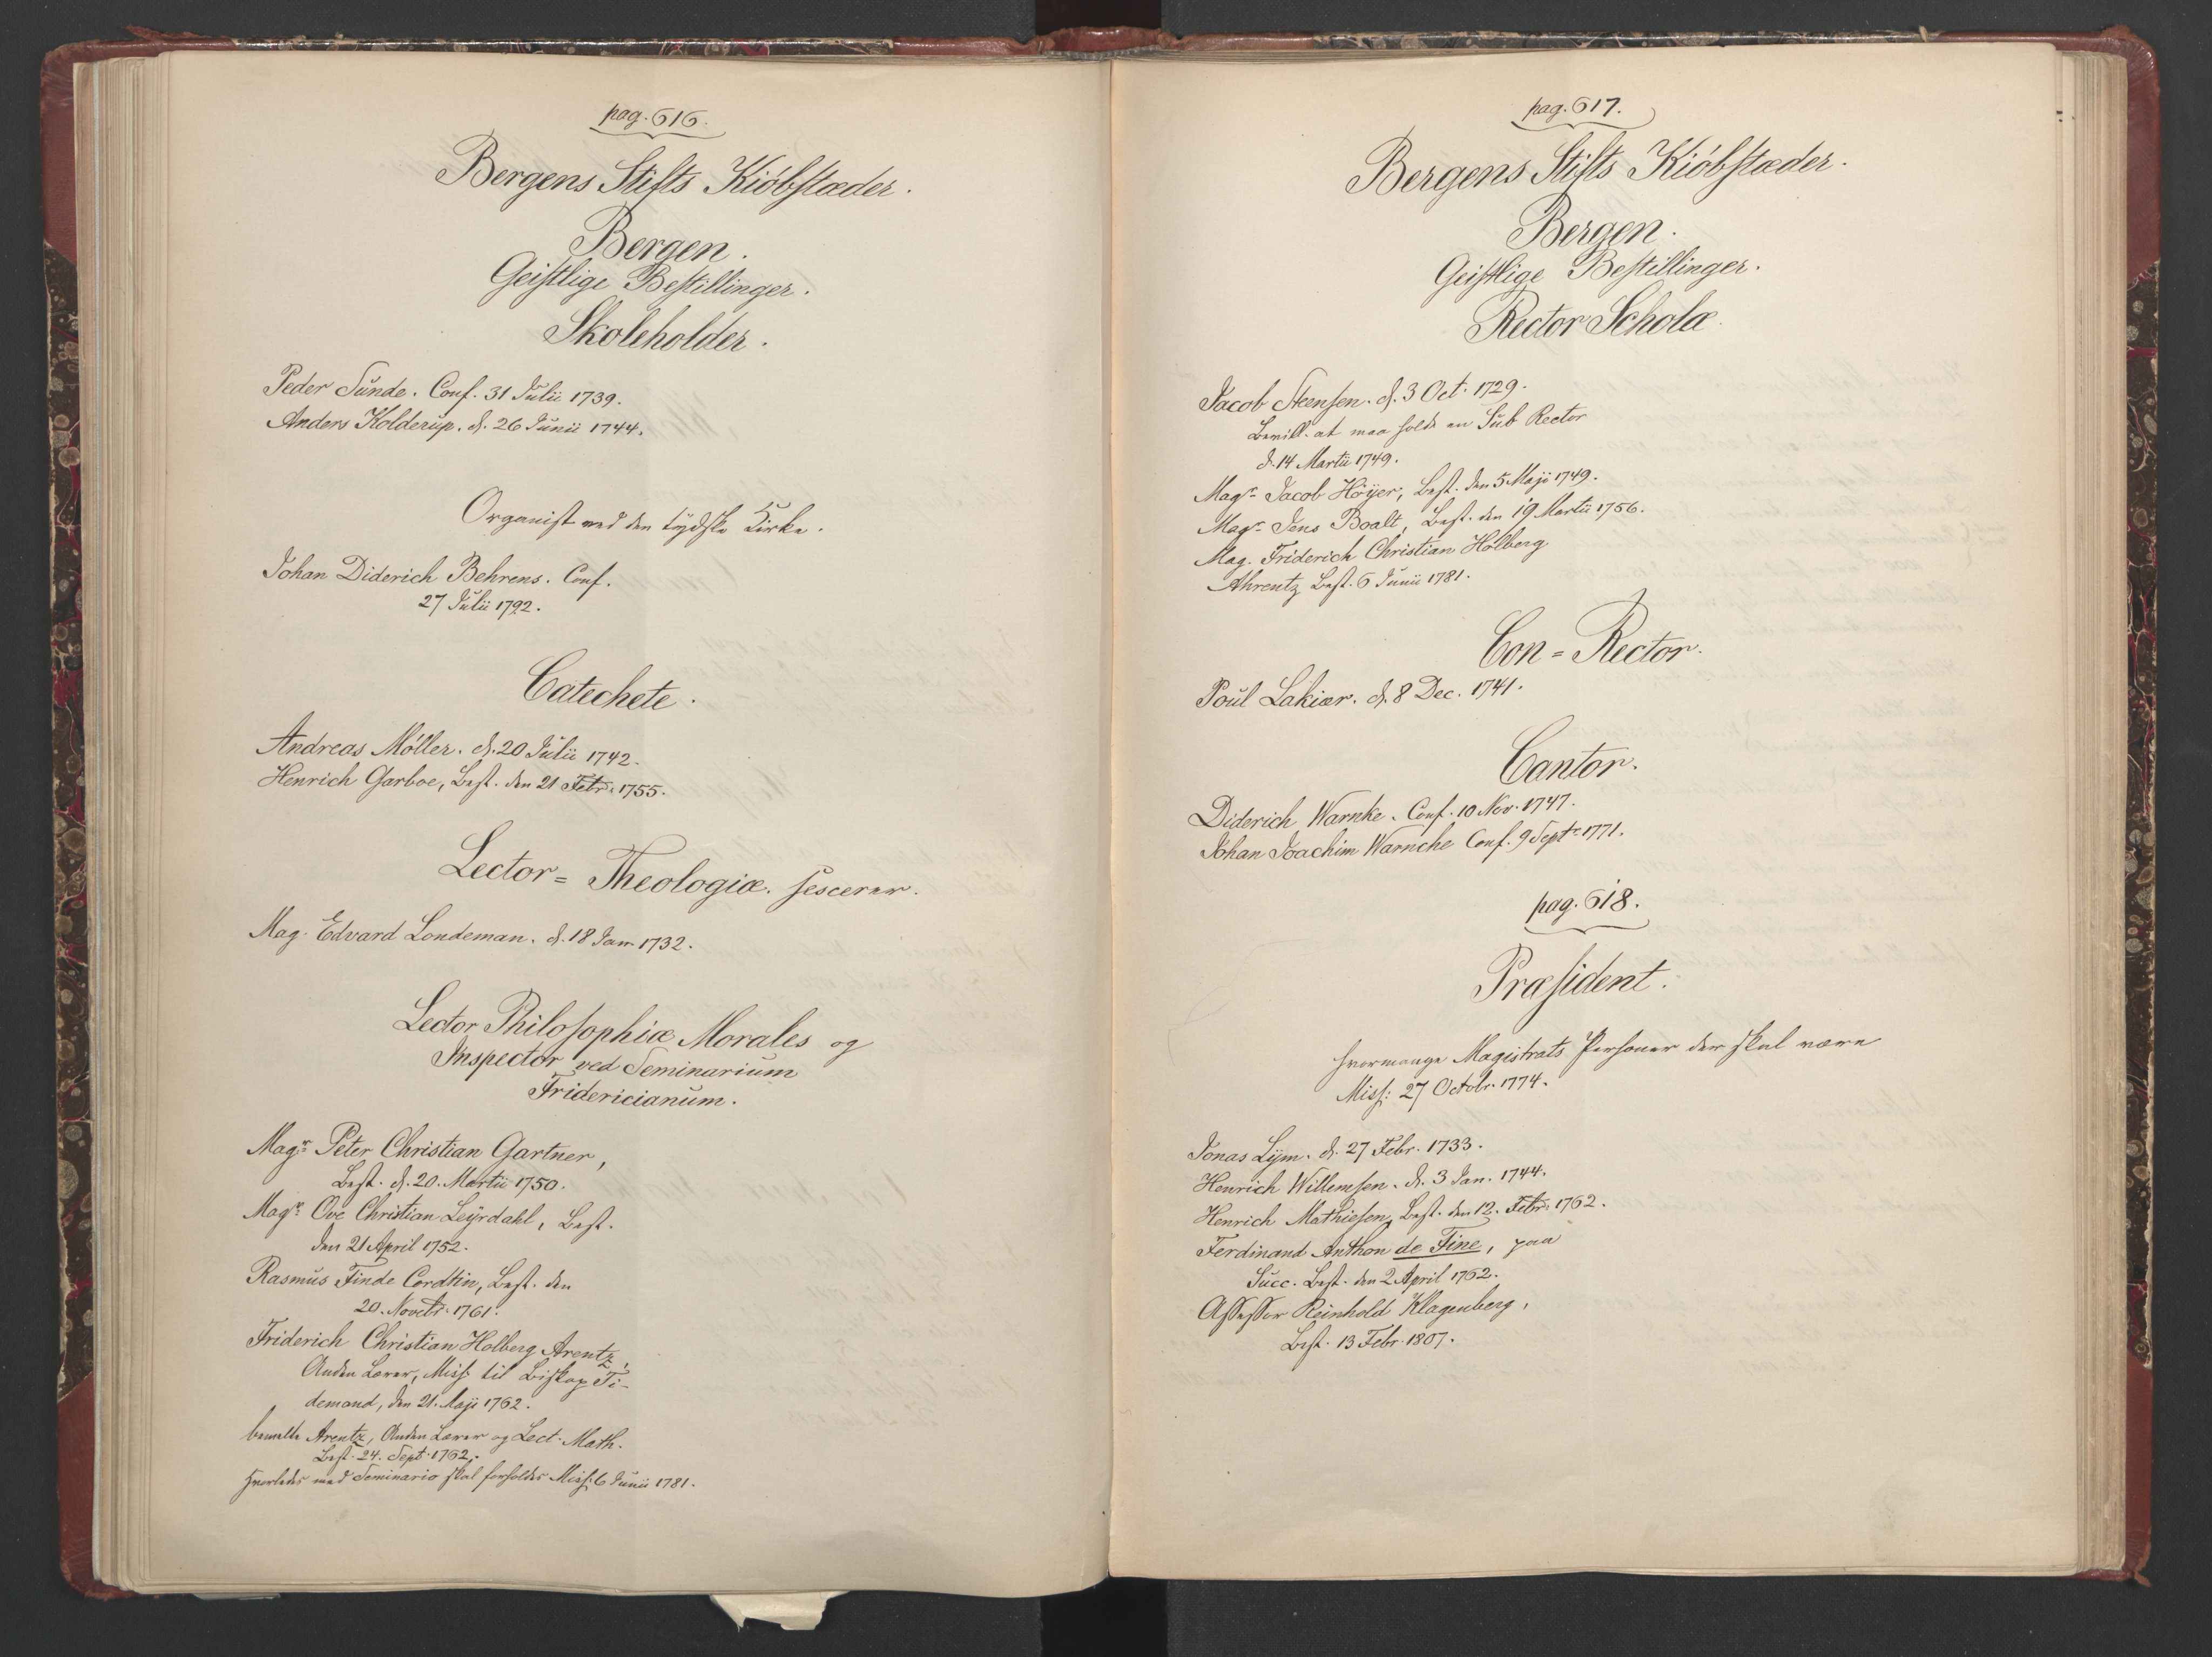 pag. 616.
Bergens Stifts Kiöbstæder.
Bergen.
Geistlige Bestillinger.
Skoleholder.
Peder Sunde. Conf. 31 Julii 1739.
Anders Kolderup. d. 26 Junii 1744.
Organist ved den tydske Kirke.
Johan Diderich Behrens. Conf.
27 Julii 1792.
Catechete.
Andreas Möller. d. 20 Julii 1742.
Henrich Garboe, Best. den 21 Febr. 1755.
Lector = Theologiæ.
Mag. Edvard Londeman. d. 18 Jan 1732.
Lector Philosophiæ Morales og
Inspector ved Seminarium
Fridericianum.
Magr. Peter Christian Gartner,
Best. d. 20. Martii 1750.
Magr. Ove Christian Leyrdahl, Best.
den 21 April 1752.
Rasmus Finde Cordtin, Best. den
20. Novebr. 1761.
Friderich Christian Holberg Arentz,
Anden Lærer, Miss: til Biskop Ti-
demand, den 21. Maji 1762.
bemelte Arentz, Anden Lærer og Lect. Math.
Best. 24. Sept. 1762.
Hvorledes med Seminario skal forholdes Miss: 6 Junii 1781.
pag. 617.
Bergens Stifts Kiöbstæder.
Bergen.
Geistlige Bestillinger.
Rector Scholæ.
Jacob Steensen. d. 3 Oct. 1729.
Bevill. at maa holde en Sub Rector
d. 14 Martii 1749.
Magr. Jacob Höyer, Best. den 5 Maji 1749.
Magr. Jens Boalt, Best. den 19 Martii 1756.
Mag. Friderich Christian Holberg
Ahrentz Best. 6 Junii 1781.
Con = Rector.
Poul Lakiær. d. 8 Dec. 1741.
Cantor.
Diderich Warnke. Conf. 10 Nov. 1747.
Johan Joachim Warnche Conf. 9 Septr. 1771.
pag. 618.
Præsident.
Hvormange Magistrats Personer der skal være
Miss: 27 Octobr. 1774.
Jonas Lym. d. 27 Febr. 1733.
Henrich Willemsen. d. 3 Jan. 1744.
Henrich Mathiesen, Best. den 12. Febr. 1762.
Ferdinand Anthon de Fine, paa
Succ. Best. den 2 April 1762.
Assessor Reinhold Klagenberg,
Best. 13 Febr. 1807.